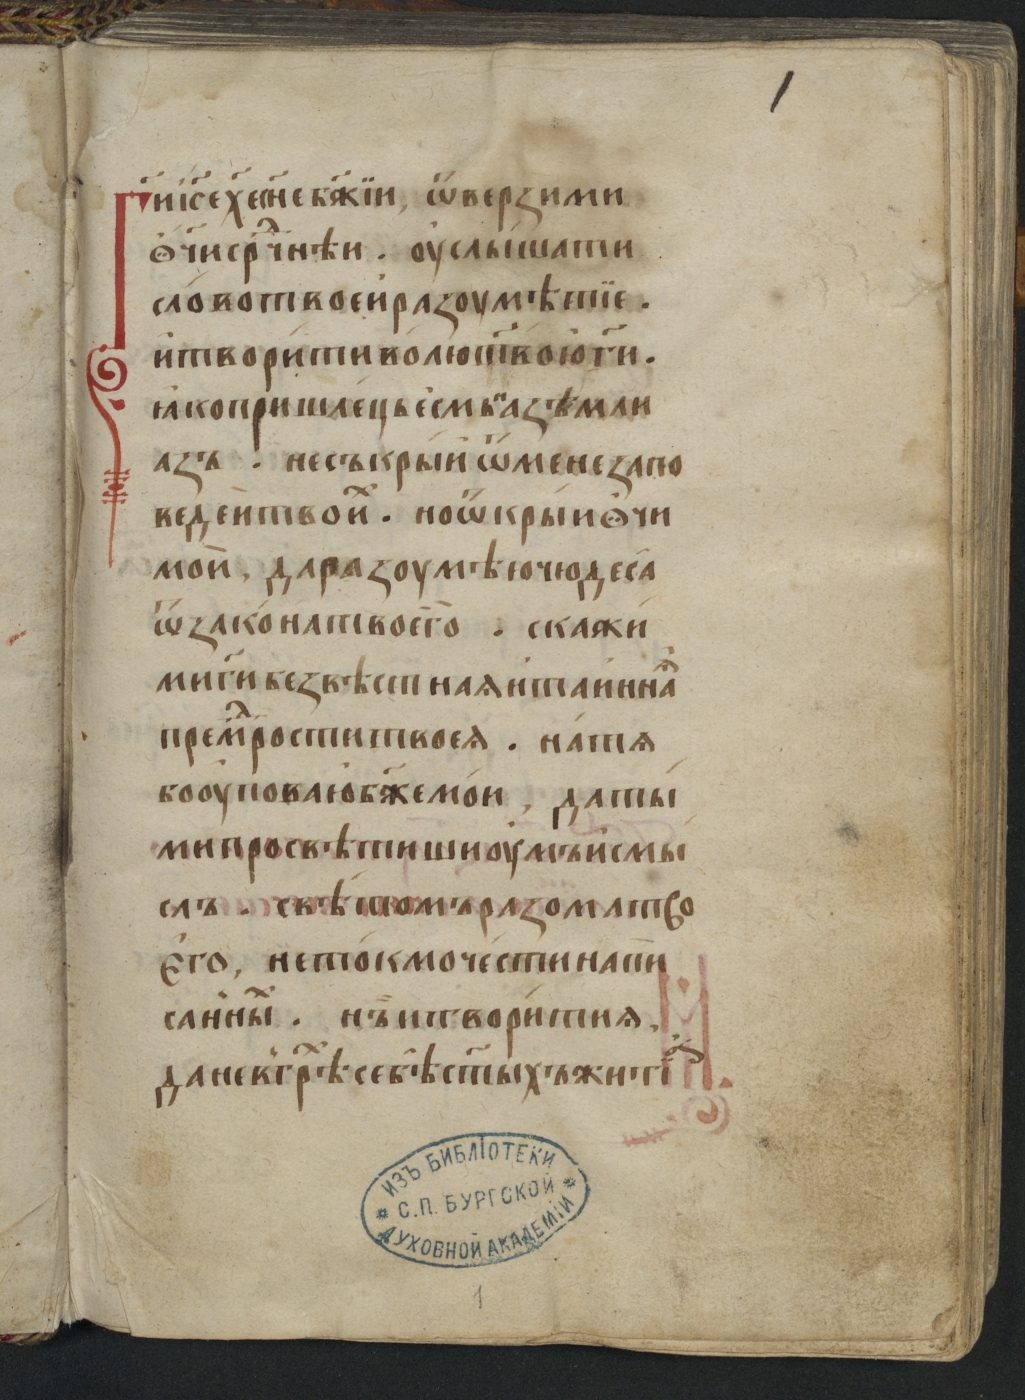 1
Ги іс҃е хе҃ сн҃е бж҃їи, ѿверзи ми
ѻ҆чи срⷣчнѣи . оуслышати
слово твое и разоумѣтїе .
и творити волю твою гⷭ҇и .
ꙗко пришлець есмь аз ѣмли
азъ . не съкрый ѿ мене запо
ведеи твоиⷯ . но ѿкрыи ѻчи
мои, да разоумѣю чюдеса
ѿ закона твоего . скажи
ми ги безвѣстнаѧ и таиннаѧ
премⷣрости твоеѧ . на тѧ
бо оуповаю бж҃е мои, да ты
ми просвѣтиши оумъ и смы
слъ . свѣтомъ разома тво
его, не токмо чести напи
санныⷯ . нъ и творити ѧ,
да не въ грⷯѣ себѣ ст҃ыхъ житїа
ИЗЪ БИБЛІОТЕКИ
С.П. БУРГСКОЙ
ДУХОВНОЙ АКАДЕМІИ
1